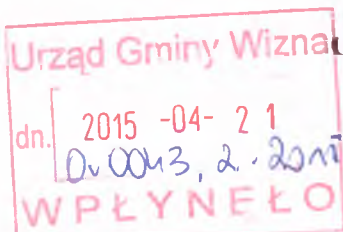 Urząd Gminy Wizna
dn. 2015 -04- 2 1
Or. 0043. 2. 2015
WPŁYNĘŁO